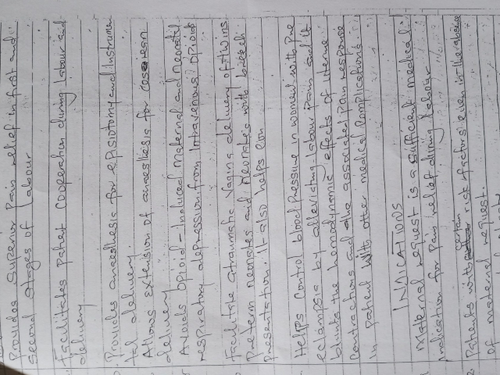 Provides superior Pain relief in first and
second stages of Labour
Facilitates patient cooperation during labour and
delivery
Provides anaesthesia for episiotomy and Instrumen
tal delivery
Allows extension of anaesthesia for cesarean
delivery
Avoids opioid-Induced Maternal and Neonatal
respiratory depression from Intravenous opioid
Facilitate atraumatic Vagina delivery of twins
Preterm neonates and Neonates with breech
Presentation. It also helps con
Helps control blood pressure in women with Pre
eclampsia by alleviating labour Pain and It
blunts the hemodynamic effects of uterine
contractions and the associated Pain response
in patient with other medical complications
INDICATIONS
Maternal request is a sufficient medical
Indication for Pain relief during labour
Patients with certain risk factors even in the absence
of maternal request